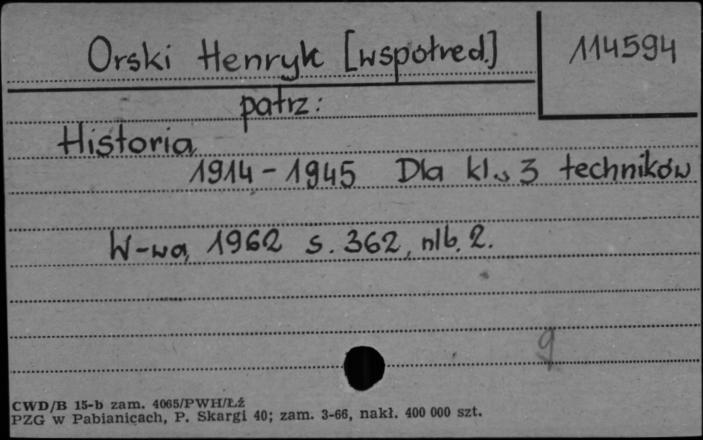 Orski Henryk [współred.] 114594
patrz:
Historia
1914-1945 Dla kl. 3 techników
W-wa, 1962 s. 362, nlb. 2.
9
CWD/B 15-b zam. 4065/PWH/Łź
PZG w Pabianicach, P. Skargi 40; zam. 3-66, nakł. 400 000 szt.